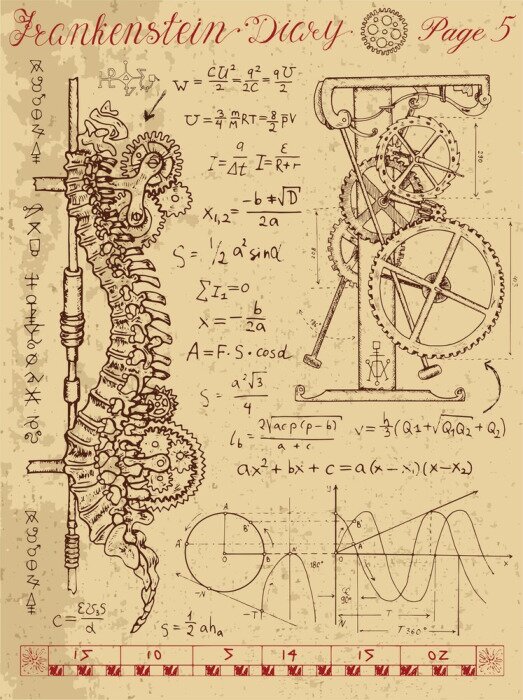 Frankenstein Diary
Page 5
W = CU²/2 = q²/2C = qU/2
U = 3/4 m/M RT = 8/2 pV
I = q/Δt I = ε/R+r
X₁,₂ = -b ± √D / 2a
S = 1/2 a² sinα
∑I₁=0
x = - b/2a
A = F·S·cosα
S = a²√3/4
lb = 2√acp(p-b) / a+c
V = h/3 (Q1 + √Q1Q2 + Q2)
ax² + bx + c = a(x - x₁)(x - x₂)
290
A
B
y
B'
A'
O
B
N
180°
A
x
-N
-T
90°
N
T
T 360°
C = εε₀S/d
S = 1/2 aha
15 10 5 14 15 02